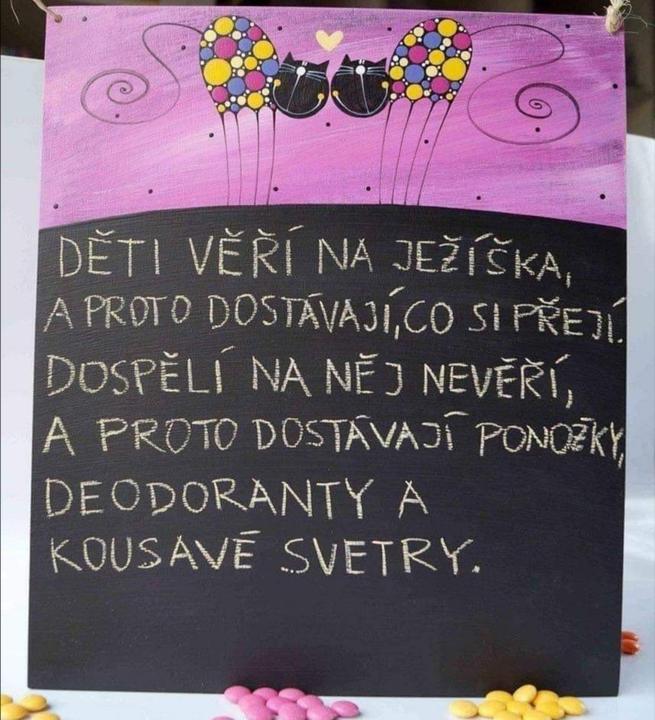 DĚTI VĚŘÍ NA JEŽÍŠKA,
A PROTO DOSTÁVAJÍ,CO SI PŘEJÍ.
DOSPĚLÍ NA NĚJ NEVĚŘÍ,
A PROTO DOSTÁVAJÍ PONOŽKY,
DEODORANTY A
KOUSAVÉ SVETRY.